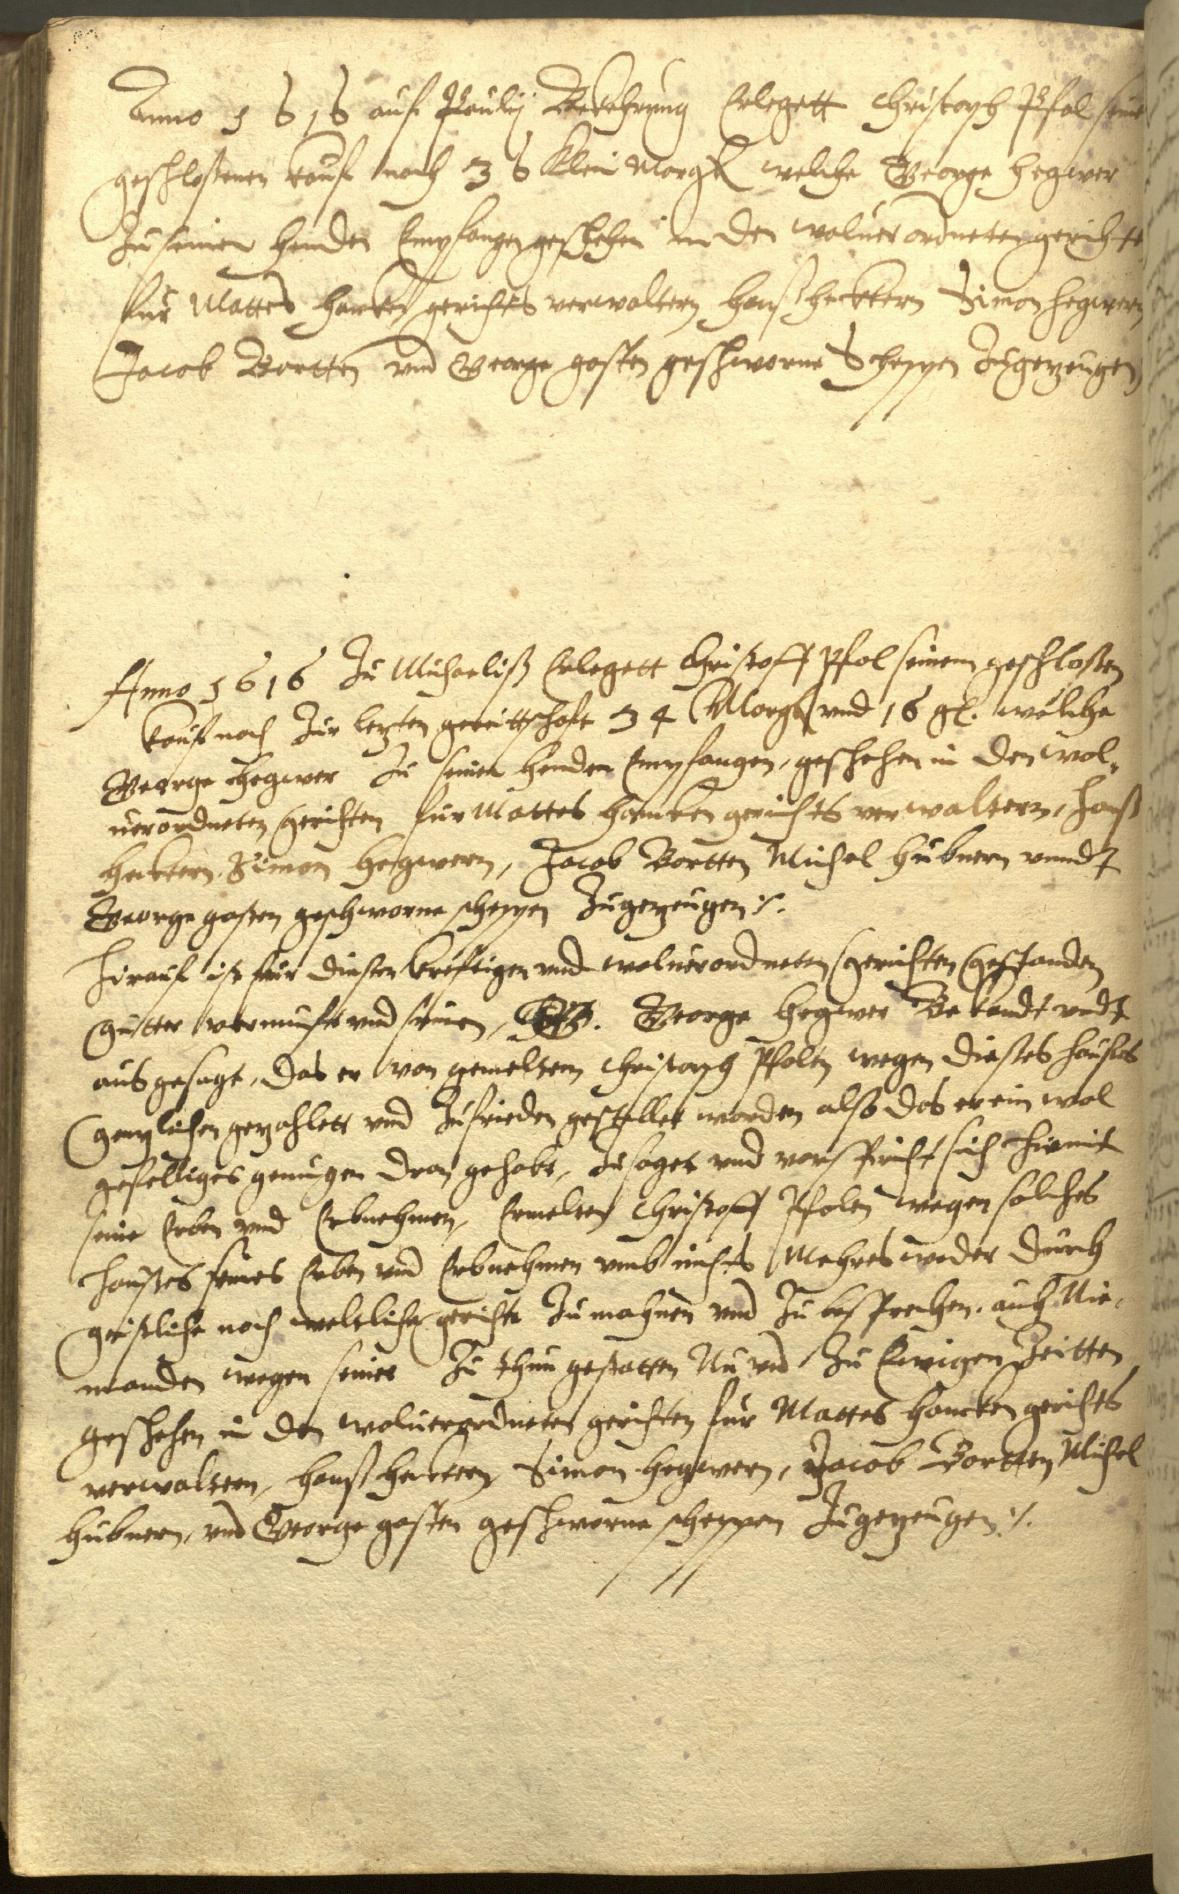 Anno 1616 auf Paulij Bekehrung Erlegett Christoph Pfol seine
geschloßenen kauf nach 36 klein Margk welche George Hegwer
Zu seinen henden Empfangen geschehen in den woluerordneten gerichte
fur Mattes Hancken gerichts verwaltern Hanß Heckern Simon Hegwern
Jacob Bortten vnd George gasten geschworne Scheppen Zugezeugen
Anno 1616 Zu Michaeliß Erlegett Christoff Pfol seinem geschloßen
kauf nach Zur lezten gerittschaft 34 Margk vnd 16 gl. welche
George Hegwer Zu seinen henden Empfangen, geschehen in den wol
uerordneten gerichten fur Mattes Hancken gerichts verwaltern, Hanß
Heckern Simon Hegwern, Jacob Bortten Michel Hubnern vnndt
George gasten geschworne scheppen Zugezeugen
Hirauf ist fur diesen kreftigen vnd woluerordneten gerichten gestanden
gutter vernunft vnd sinnen, George Hegwer Bekandt vndt
ausgesagt, das er von gemelten Christoph Pfolen wegen dießes haußes
genzlichen gezahlett vnd Zufrieden gestellet worden also das er ein wol
gefelliges genugen dran gehabt, Zusaget vnd vorspricht sich hiemit
seine Erben vnd Erbnehmen, Ermelten Christoff Pfolen wegen solches
haußes seines Erben vnd Erbnehmen vmb nichts Mehres weder durch
geistliche noch weltliche gerichte Zu mahnen vnd Zu besprechen, auch Nie
manden wegen seiner Zu thun gestatten Nu vnd Zu Ewigen Zeitten
geschehen in den woluerordneten gerichten fur Mattes Hancken gerichts
verwaltern, Hanß Heckern Simon Hegwern, Jacob Bortten Michel
Hubnern, vnd George gasten geschworne scheppen Zugezeugen